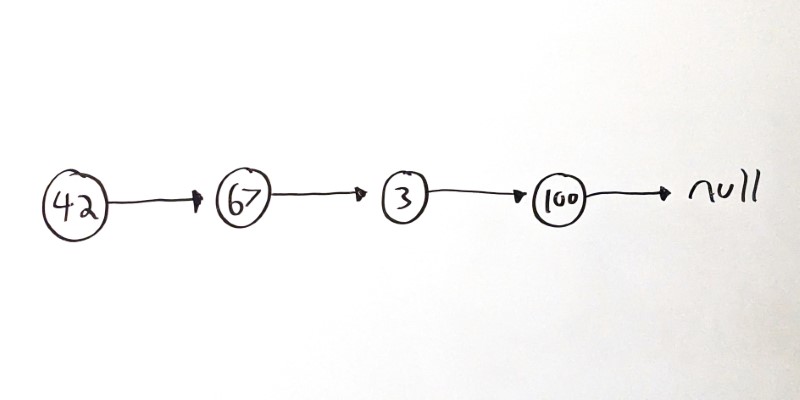 42 67 3 100 null